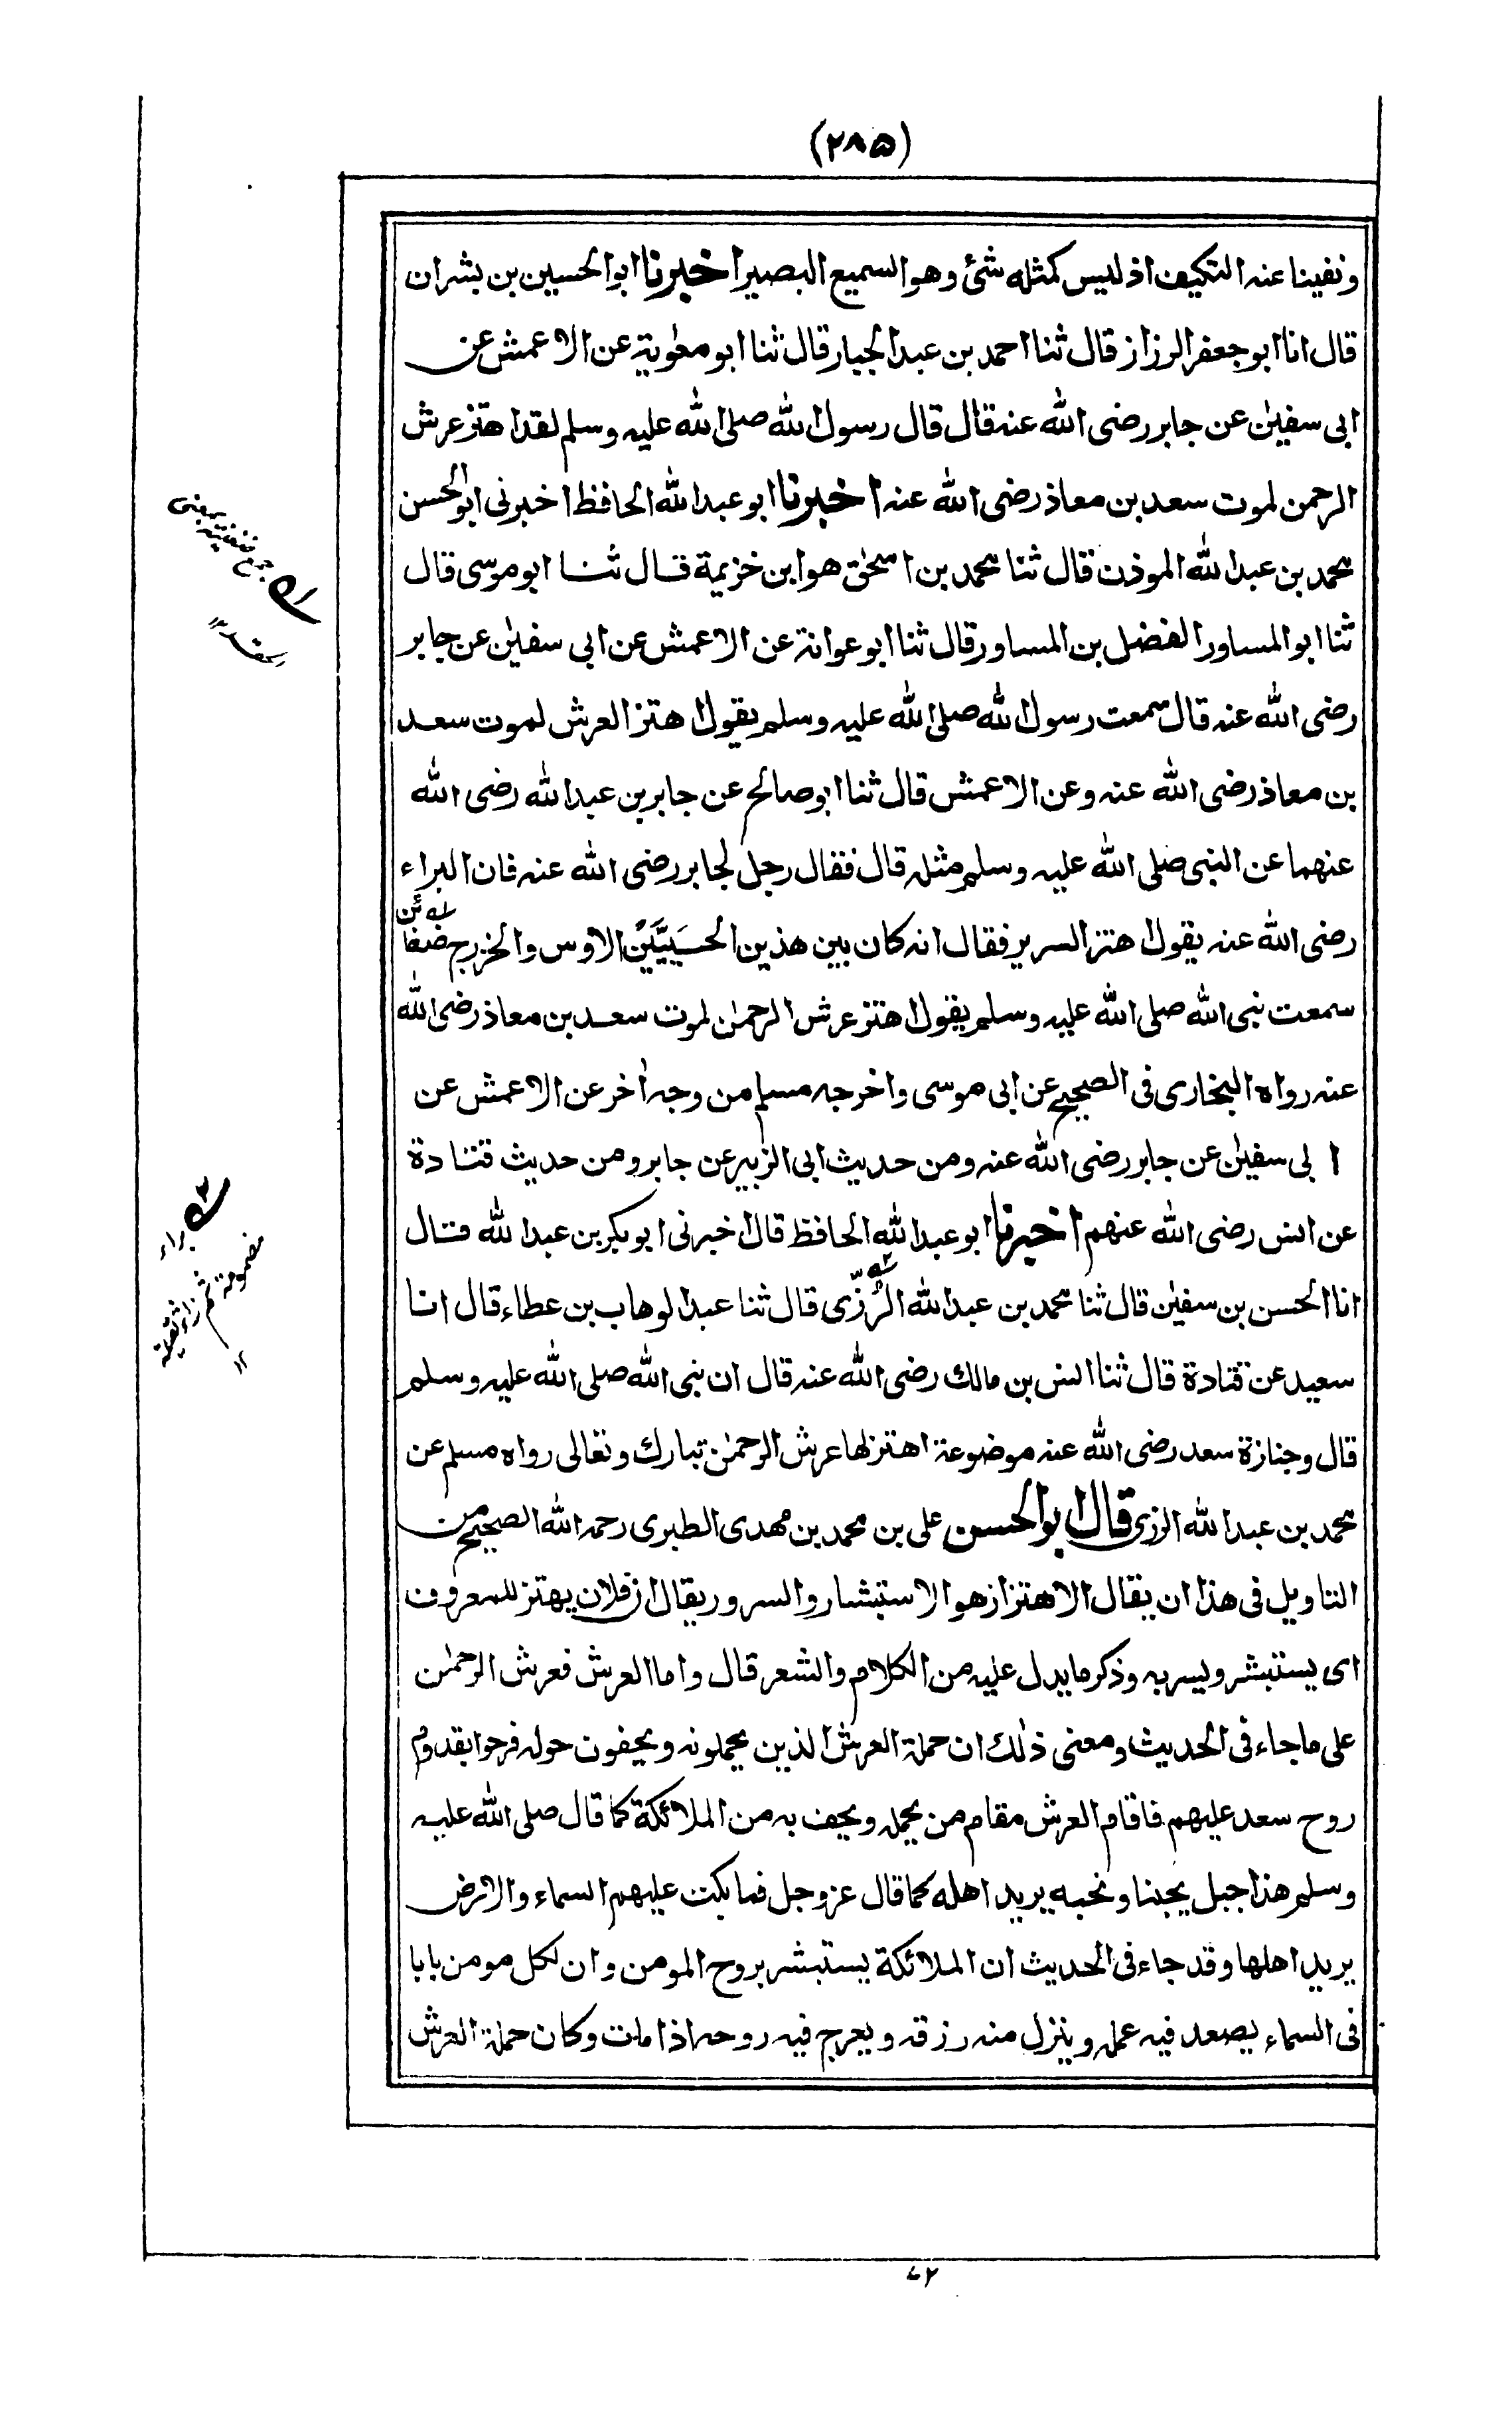 (٢٨٥)
ونفينا عنه التكييف اذ ليس كمثله شئ وهو السميع البصير اخبرنا ابوالحسين بن بشران
قال انا ابوجعفر الرزاز قال ثنا احمد بن عبدالجبار قال ثنا ابو معٰوية عن الاعمش عن
ابى سفيٰن عن جابر رضى الله عنه قال قال رسول الله صلى الله عليه وسلم لقد اهتز عرش
الرحمن لموت سعد بن معاذ رضى الله عنه اخبرنا ابو عبدالله الحافظ اخبرنى ابوالحسن
محمد بن عبدالله الموذن قال ثنا محمد بن اسحٰق هو ابن خزيمة قال ثنا ابوموسى قال
ثنا ابوالمساور الفضل بن المساور قال ثنا ابوعوانة عن الاعمش عن ابى سفيٰن عن جابر
رضى الله عنه قال سمعت رسول الله صلى الله عليه وسلم يقول اهتز العرش لموت سعد
بن معاذ رضى الله عنه وعن الاعمش قال ثنا ابوصالح عن جابر بن عبدالله رضى الله
عنهما عن النبى صلى الله عليه وسلم مثله قال فقال رجل لجابر رضى الله عنه فان البراء
رضى الله عنه يقول اهتز السرير فقال انه كان بين هذين الحَيَّيْنِ الاوس والخزرج ضغائن
سمعت نبى الله صلى الله عليه وسلم يقول اهتز عرش الرحمٰن لموت سعد بن معاذ رضى الله
عنه رواه البخارى فى الصحيح عن ابى موسى واخرجه مسلم من وجه اٰخر عن الاعمش عن
ابى سفيٰن عن جابر رضى الله عنه ومن حديث ابى الزبير عن جابر ومن حديث قتادة
عن انس رضى الله عنهم اخبرنا ابو عبدالله الحافظ قال اخبرنى ابوبكر بن عبدالله قال
انا الحسن بن سفيٰن قال ثنا محمد بن عبدالله الرُّزِّى قال ثنا عبدالوهاب بن عطاء قال انا
سعيد عن قتادة قال ثنا انس بن مالك رضى الله عنه قال ان نبى الله صلى الله عليه وسلم
قال وجنازة سعد رضى الله عنه موضوعة اهتز لها عرش الرحمٰن تبارك وتعالى رواه مسلم عن
محمد بن عبدالله الرزى قال ابوالحسن على بن محمد بن مهدى الطبرى رحمه الله الصحيح من
التاويل فى هذا ان يقال الاهتزاز هو الاستبشار والسرور يقال ان فلان يهتز للمعروف
اى يستبشر ويسر به وذكر ما يدل عليه من الكلام والشعر قال واما العرش فعرش الرحمٰن
على ما جاء فى الحديث ومعنى ذٰلك ان حملة العرش الذين يحملونه ويحفون حوله فرحوا بقدوم
روح سعد عليهم فاقام العرش مقام من يحمله ويحف به من الملائكة كما قال صلى الله عليه
وسلم هذا جبل يحبنا ونحبه يريد اهله كما قال عزوجل فما بكت عليهم السماء والارض
يريد اهلها وقد جاء فى الحديث ان الملائكة يستبشر بروح المومن وان لكل مومن بابا
فى السماء يصعد فيه عمله وينزل منه رزقه ويعرج فيه روحه اذا مات وكان حملة العرش
له جمع ضغينة بمعنى
براء
مضمومة ثم زاء ثقيلة
١٢
٧٢